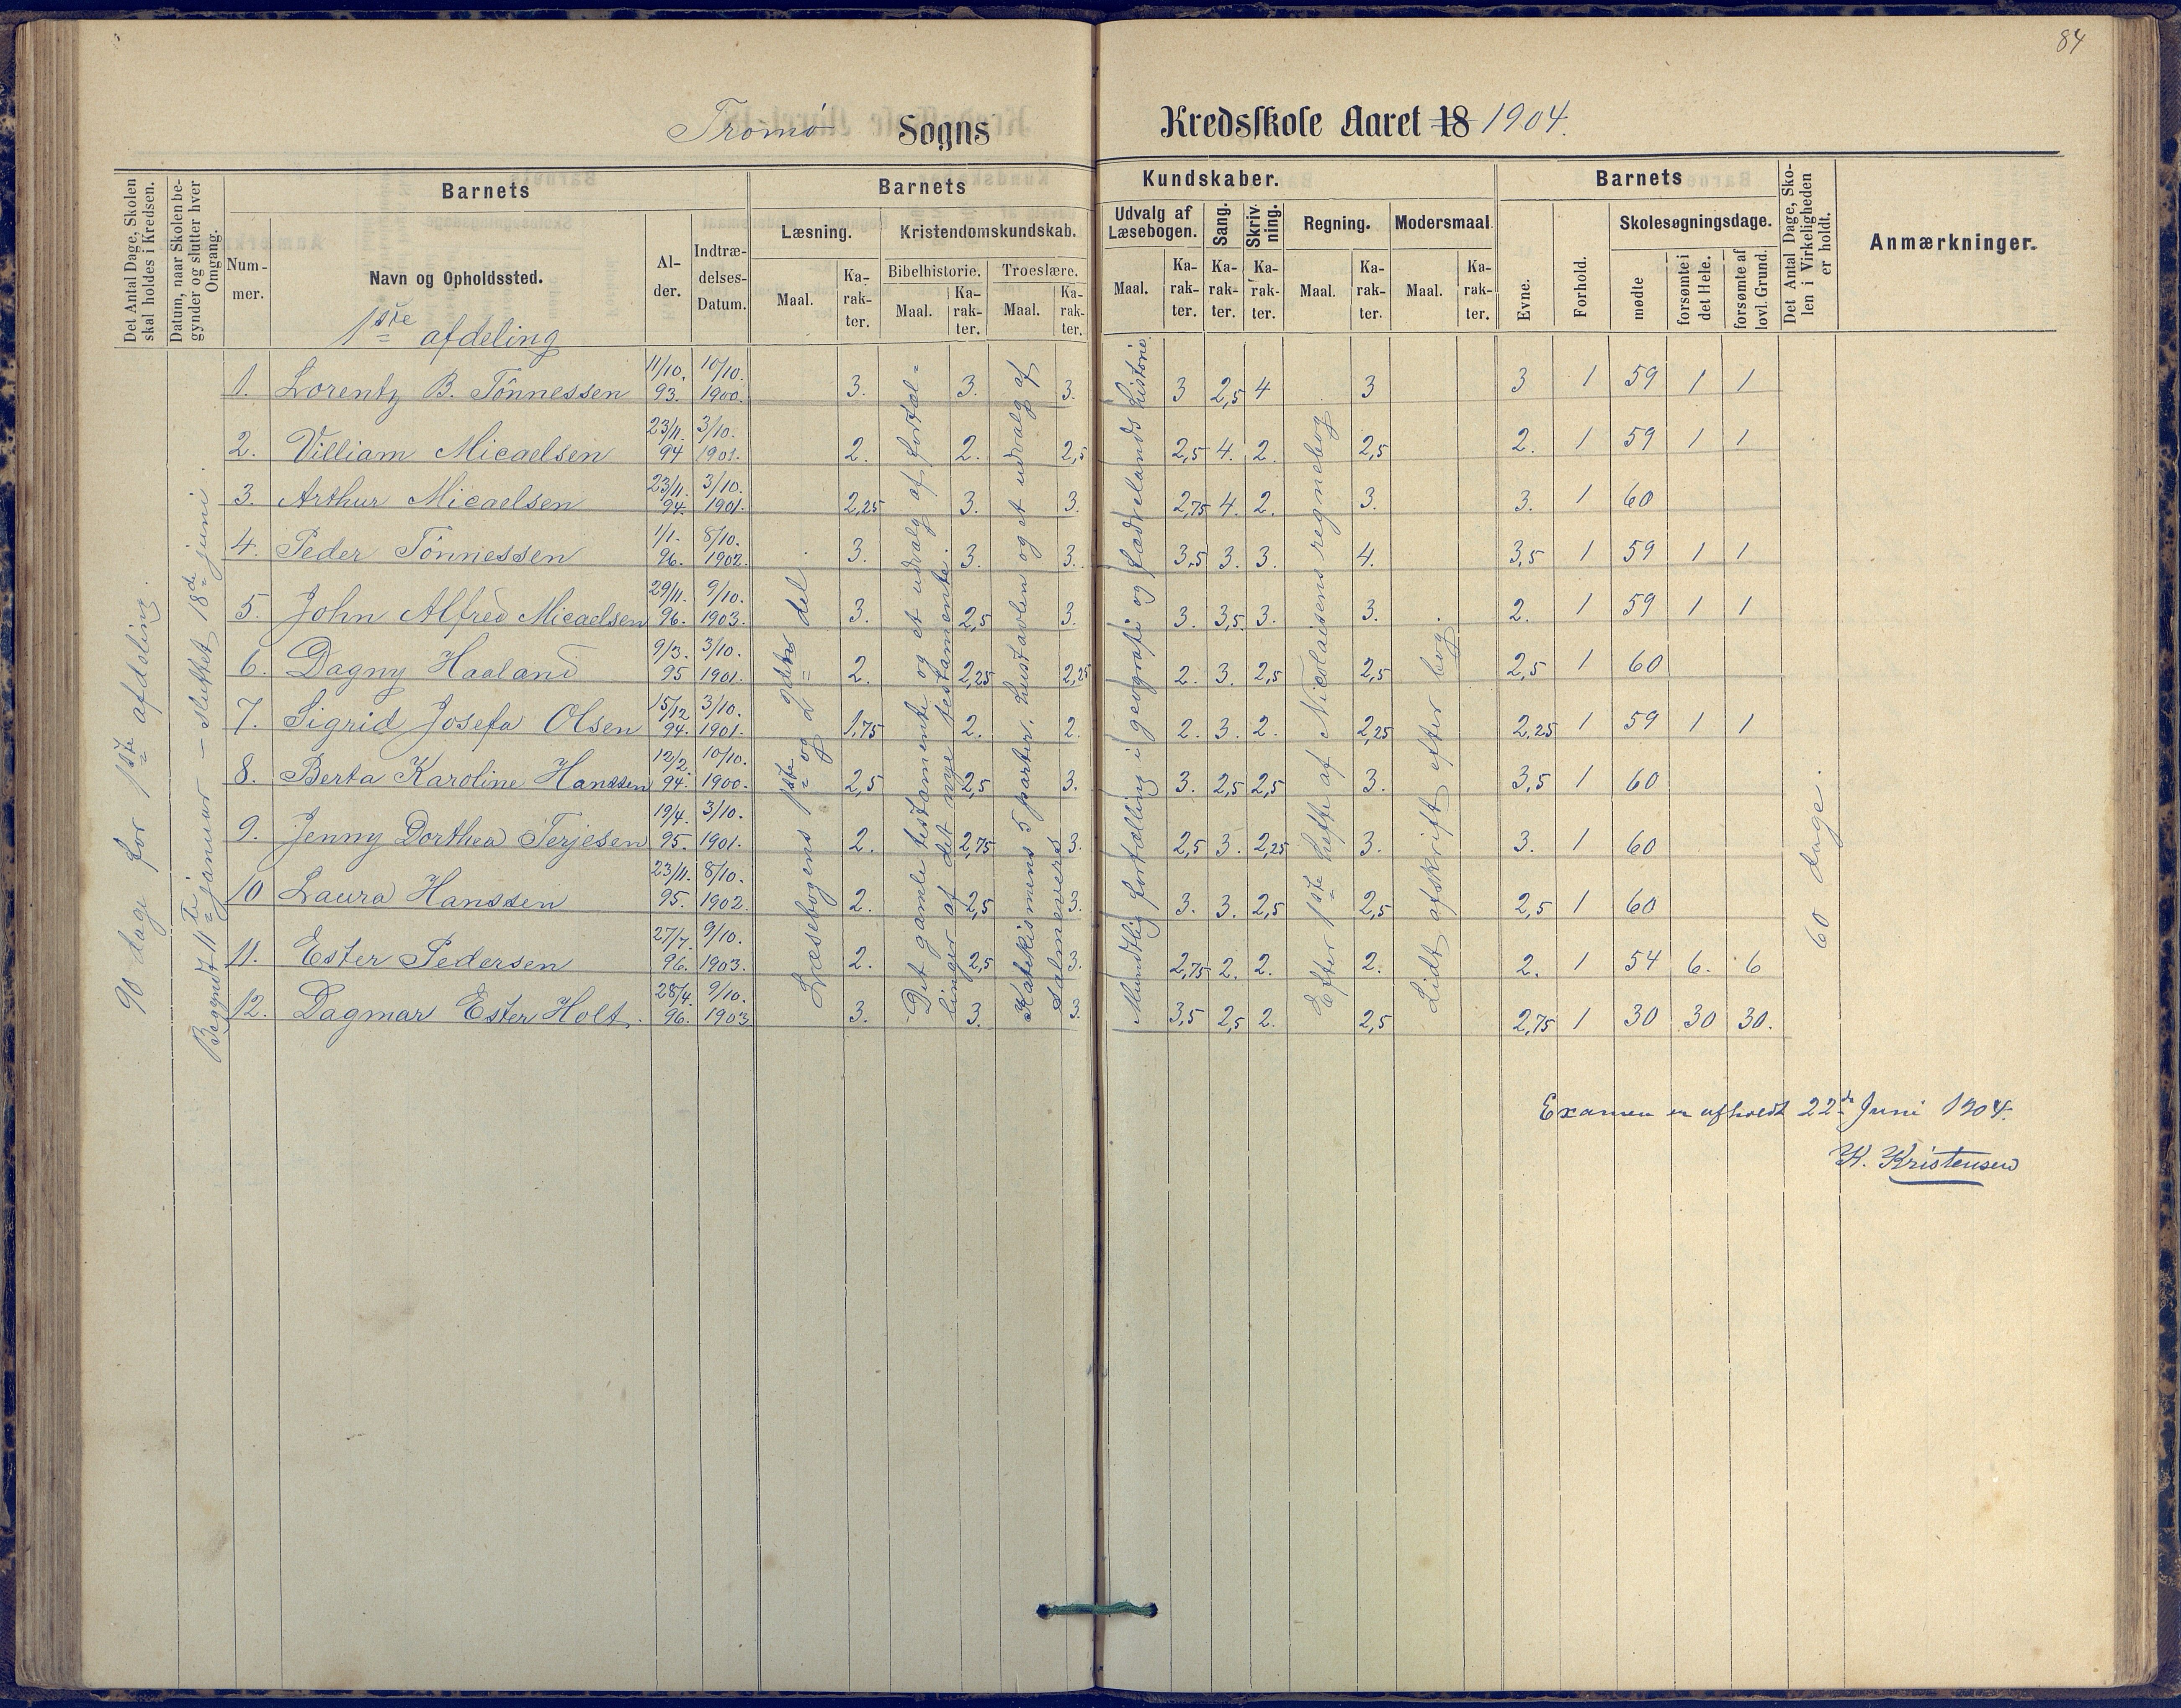 84
Tromø Sogns Kredsskole Aaret 18 1904.
Det Antal Dage, Skolen skal holdes i Kredsen.
Datum, naar Skolen begynder og slutter hver Omgang.
Barnets
Nummer.
Navn og Opholdssted.
Alder.
Indtrædelses-Datum.
Barnets Kundskaber.
Læsning.
Maal.
Karakter.
Kristendomskundskab.
Bibelhistorie.
Maal.
Karakter.
Troeslære.
Maal.
Karakter.
Udvalg af Læsebogen.
Maal.
Karakter.
Sang.
Karakter.
Skrivning.
Karakter.
Regning.
Maal.
Karakter.
Modersmaal.
Maal.
Karakter.
Barnets
Evne.
Forhold.
Skolesøgningsdage.
mødte
forsømte i det Hele.
forsømte af lovl. Grund.
Det Antal Dage, Skolen i Virkeligheden er holdt.
Anmærkninger.
1ste afdeling
1. Lorentz B. Tönnessen 11/10. 93. 10/10. 1900. 3. 3. 3. 3 2,5 4 3 3 1 59 1 1
2. Villiam Micaelsen 23/11. 94 3/10. 1901. 2. 2. 2,5 2,5 4. 2. 2,5 2. 1 59 1 1
3. Arthur Micaelsen 23/11. 94. 3/10. 1901. 2,25 3. 3. 2,75 4. 2. 3. 3. 1 60
4. Peder Tönnessen 1/1. 96. 8/10. 1902. 3. 3. 3. 3,5 3. 3. 4. 3,5 1 59 1 1
5. John Alfred Micaelsen 29/11. 96. 9/10. 1903. 3. 2,5 3. 3. 3,5. 3. 3. 2. 1 59 1 1
6. Dagny Haaland 9/3. 95 3/10. 1901. 2. 2,25 2,25 2. 3. 2,5 2,5 2,5 1 60
7. Sigrid Josefa Olsen 15/12 94. 3/10. 1901. 1,75 2. 2. 2. 3. 2. 2,25 2,25 1 59 1 1
8. Berta Karoline Hanssen 12/2. 94. 10/10. 1900. 2,5 2,5 3. 3. 2,5 2,5 3. 3,5 1 60
9. Jenny Dorthea Terjesen 19/4. 95. 3/10. 1901. 2. 2,75 3. 2,5 3. 2,25 3. 3. 1 60
10 Laura Hanssen 23/11. 95. 8/10. 1902. 2. 2,5 3. 3. 3. 2,5 2,5 2,5 1 60
11. Ester Pedersen 27/7. 96. 9/10. 1903. 2. 2,5 3. 2,75 2. 2. 2. 2. 1 54 6. 6
12. Dagmar Ester Holt. 28/4. 96. 9/10. 1903 3. 3. 3. 3,5 2,5 2. 2,5 2,75 1 30 30 30.
90 dage for 1ste afdeling.
Begyndt 11te januar – sluttet 18de juni.
Læsebogens 1ste og 2den del.
Det gamle testamente og et udvalg af fortæl=
linger af det nye testamente.
Katekismens 5 parter, hustavlen og et udvalg af
salmevers
Mundtlig fortælling i geografi og fædrelandshistorie
Efter 1ste hefte af Nicolaisens regnebog
Lidt afskrift efter bog
60 dage.
Examen er afholdt 22de Juni 1904.
K. Kristensen